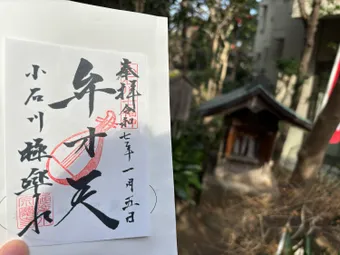 奉拝 令和七年 一月五日
弁才天
小石川 極楽水